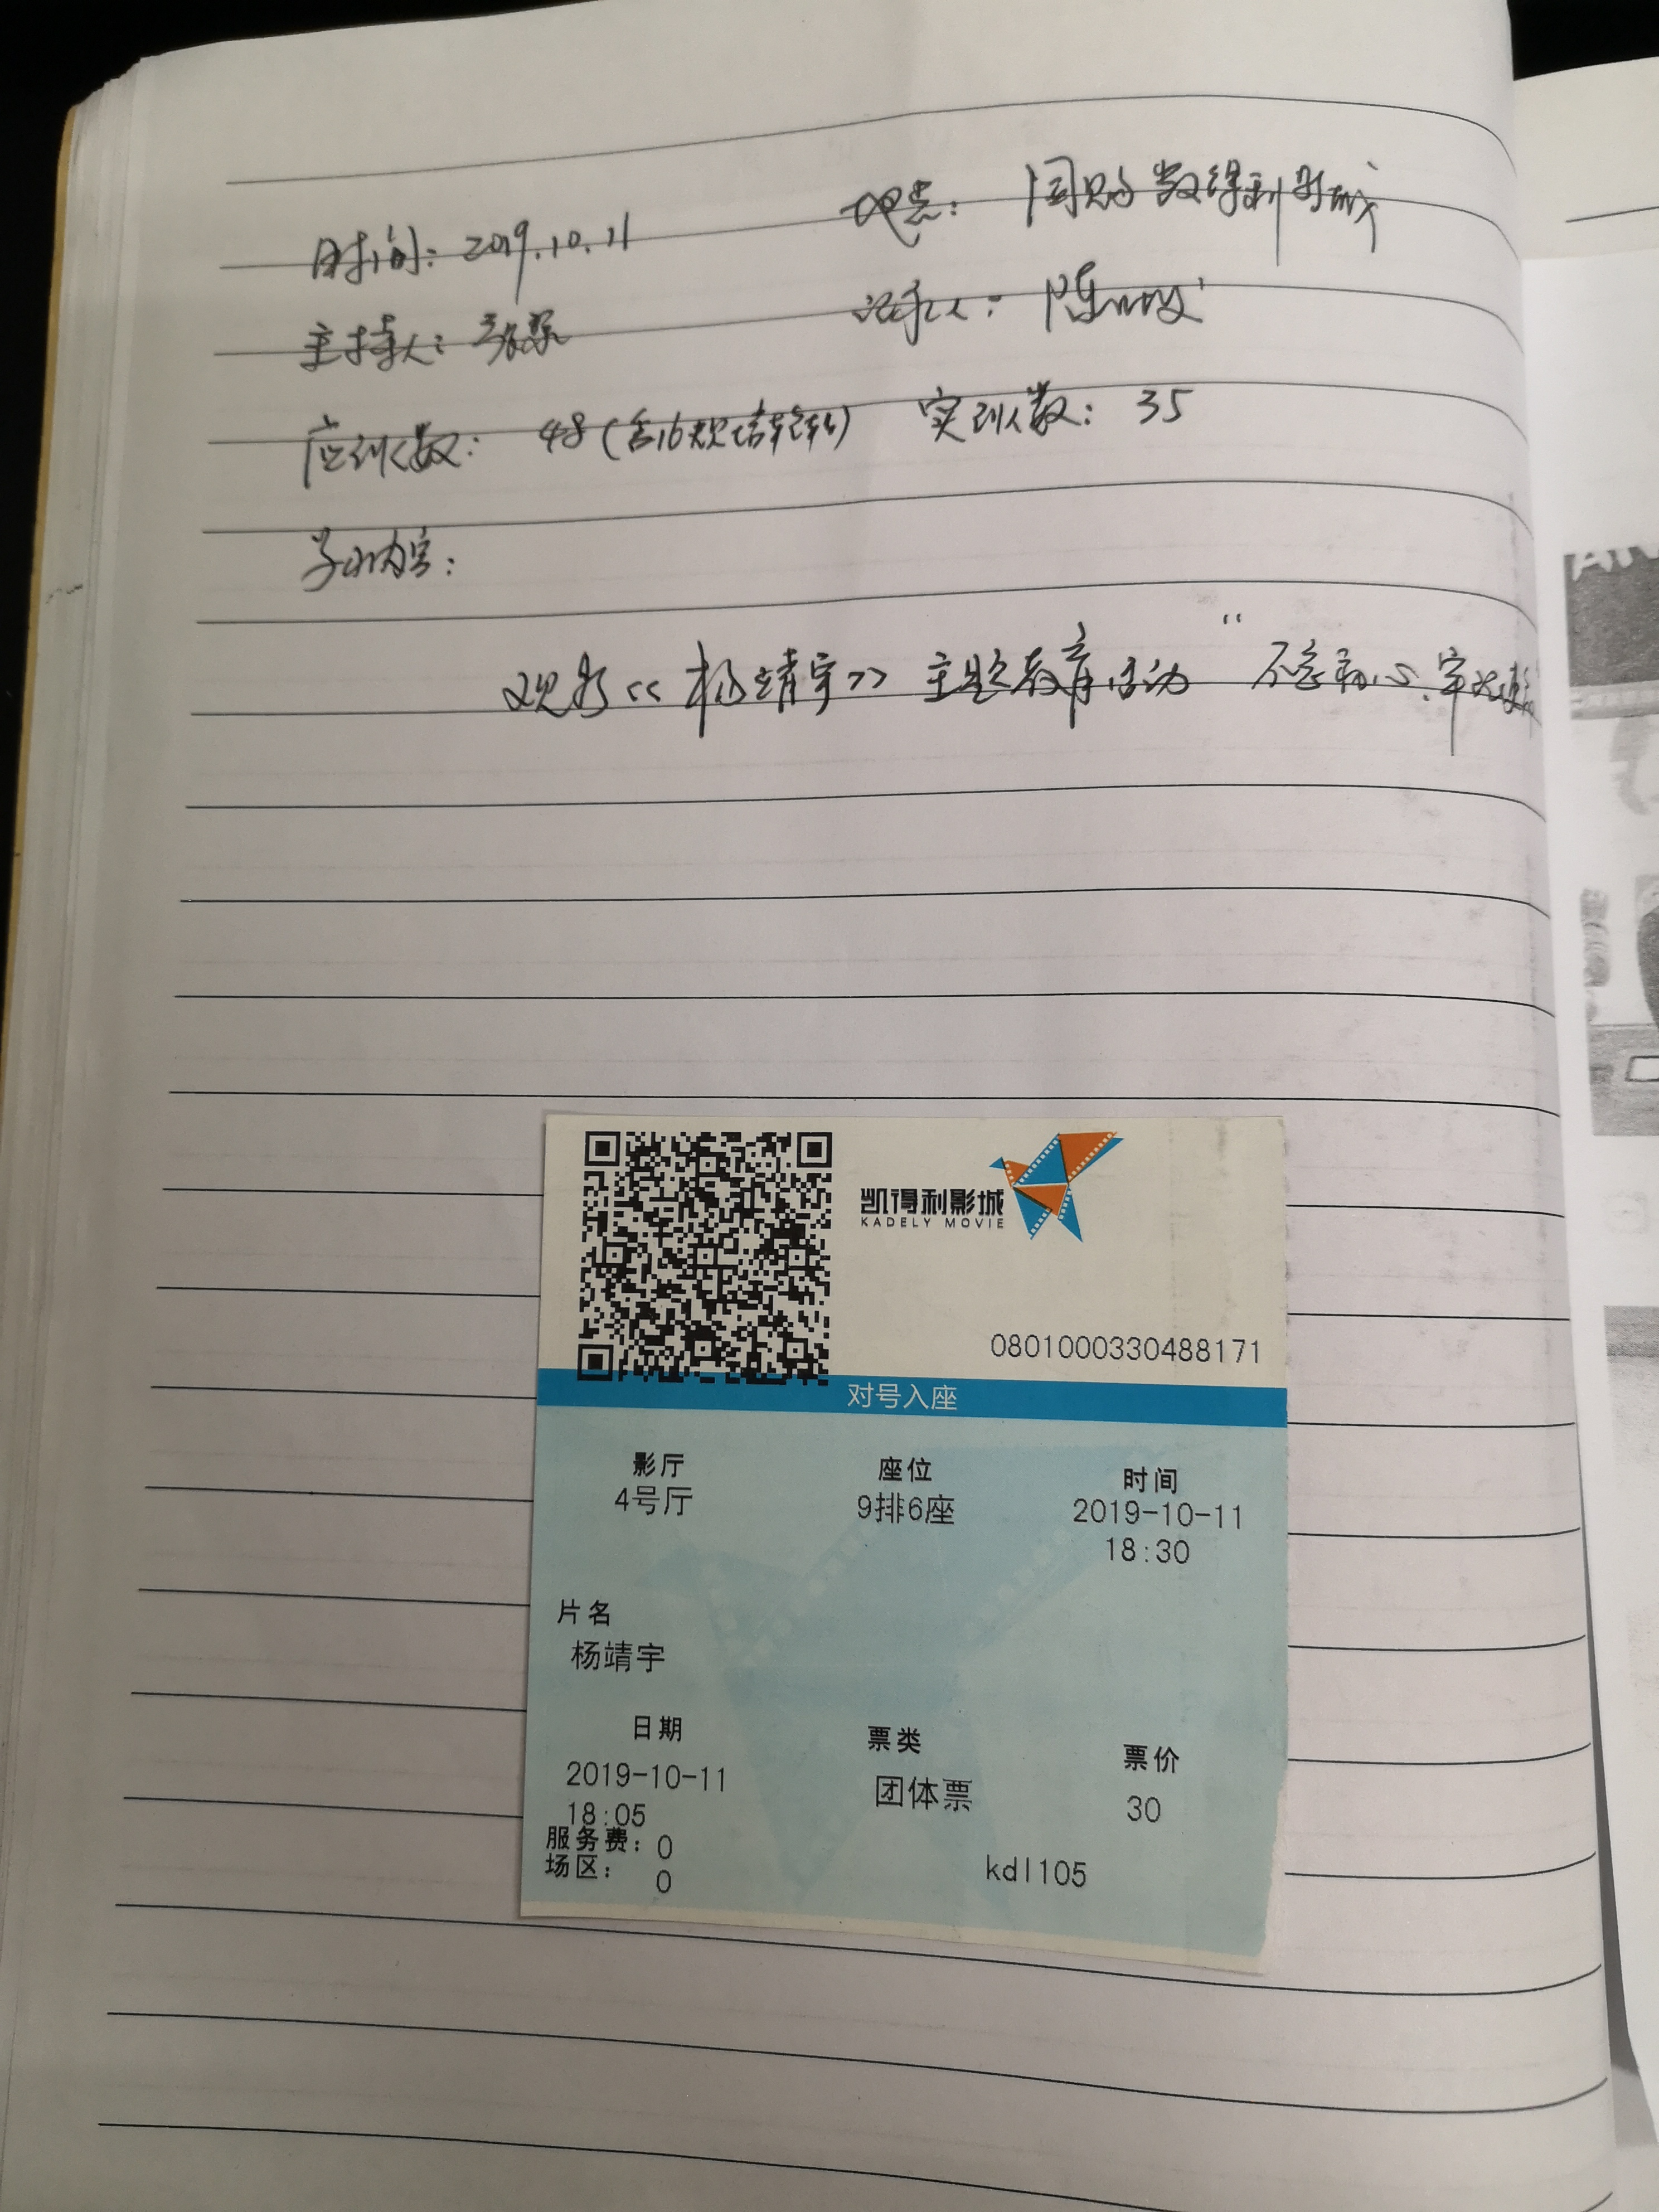 时间：2019.10.11 地点：国购 数得利影城
主持人： 记录人：陈
应到人数：48（含16 结转） 实到人数：35
学习内容：
观影<<杨靖宇>>主题教育活动 “不忘初心.牢
凯得利影城
KADELY MOVIE
0801000330488171
对号入座
影厅 座位 时间
4号厅 9排6座 2019-10-11
18:30
片名
杨靖宇
日期 票类 票价
2019-10-11 团体票 30
18:05
服务费：0
场区：0
kdl105